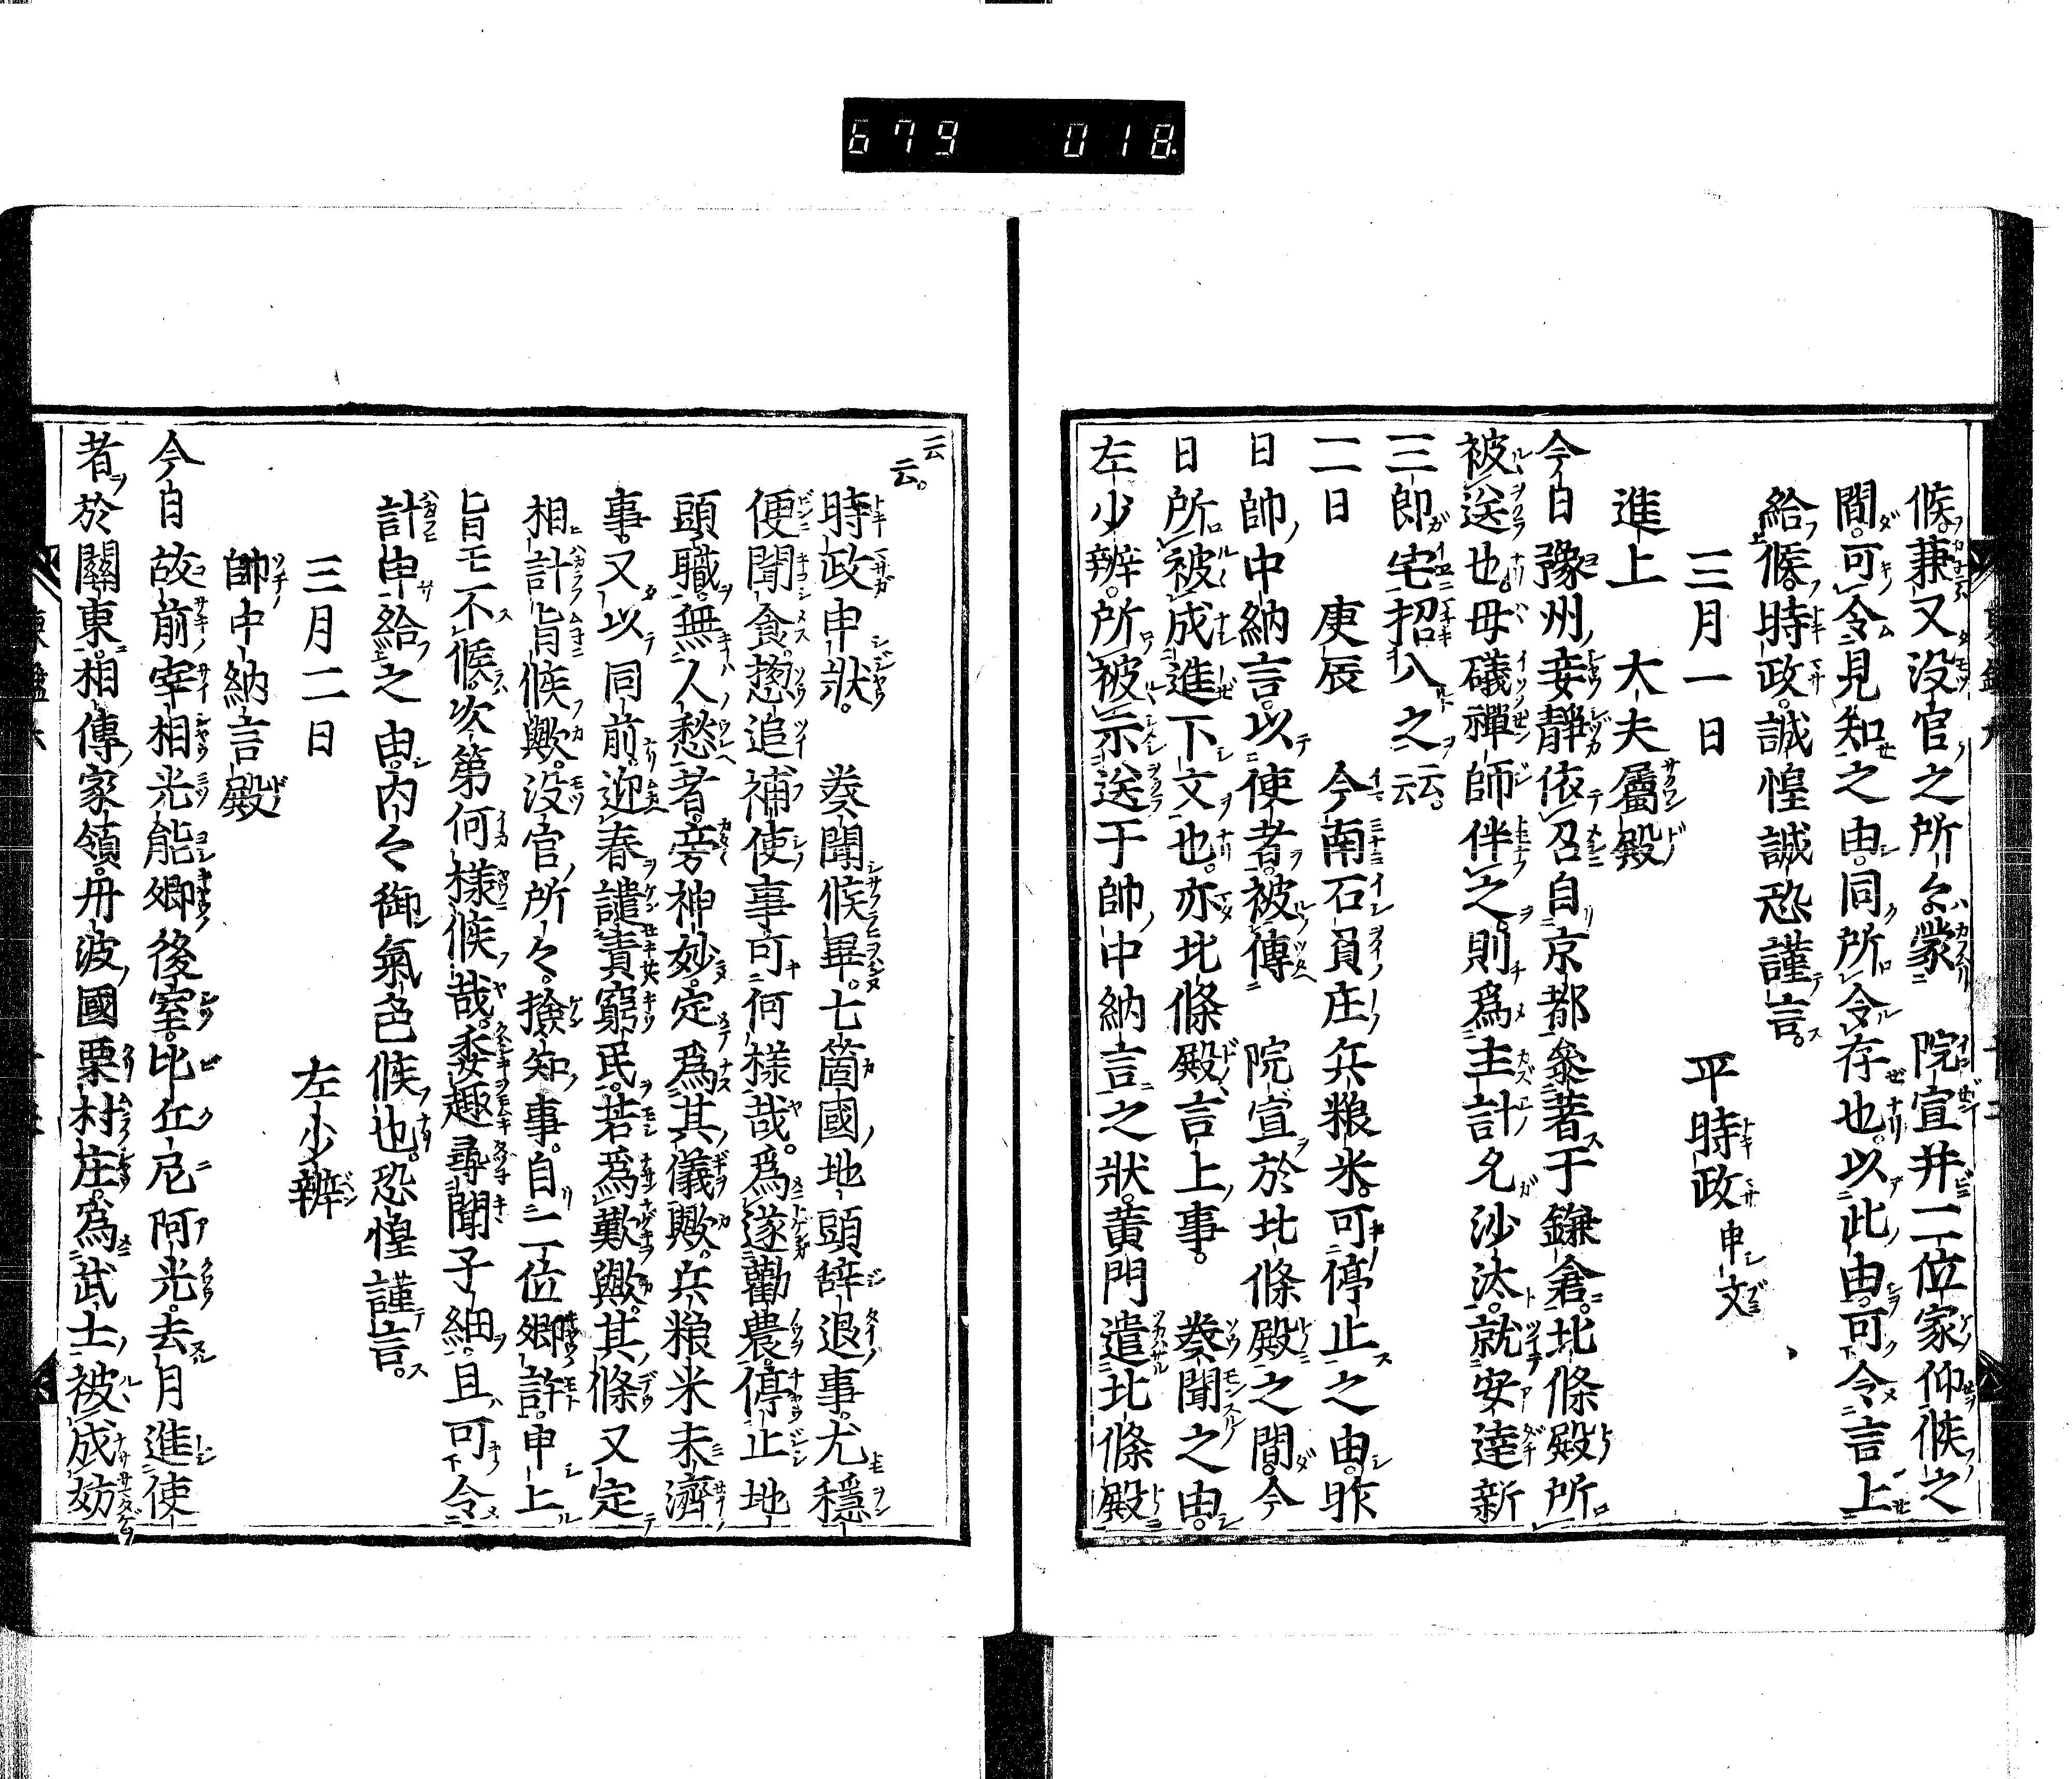 679 018
候。兼又没官之所々。蒙 院宣并二位家仰候之
間。可令見知之由。同所令存也。以此由。可令言上
給候。時政。誠惶誠恐謹言。
三月一日 平時政申文
進上 大夫屬殿
今日豫州妾靜依召自京都參著于鎌倉。北條殿所
被送也。母礒禪師伴之。則爲主計允沙汰。就安達新
三郎宅招入之云云。
二日 庚辰 今南石負庄兵粮米。可停止之由。昨
日帥中納言。以使者。被傳 院宣於北條殿之間。今
日所被成進下文也。亦北條殿言上事。 奏聞之由。
左少辨。所被示送于帥中納言之狀。黄門遣北條殿
云云。
時政申狀。 奏聞候畢。七箇國地頭辞退事。尤穩
便聞食。惣追補使事。可何樣哉。爲遂勸農。停止地
頭職。無人愁者。旁神妙。定爲其儀歟。兵粮米未濟
事。又以同前。迎春譴責窮民。若爲歎歟。其條又定
相計旨候歟。没官所々。撿知事。自二位卿許。申上
旨モ不候。次第何樣候哉。委趣尋聞子細。且可令
計申給之由。内々御氣色候也。恐惶謹言。
三月二日 左少辨
帥中納言殿
今日故前宰相光能卿後室。比丘尼阿光。去月進使
者於關東。相傳家領。丹波國栗村庄。爲武士被成妨